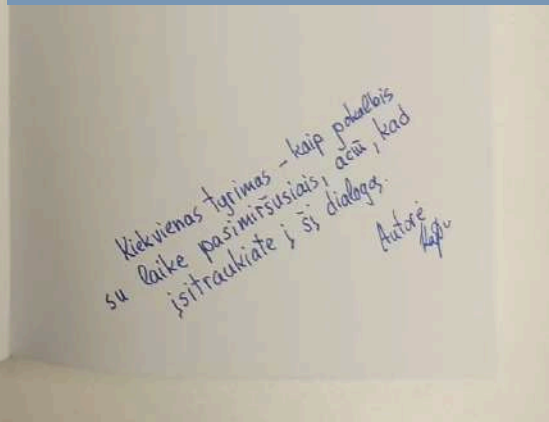 Kiekvienas tyrimas – kaip pokalbis
su laike pasimiršusiais, ačiū, kad
įsitraukiate į šį dialogą.
Autorė